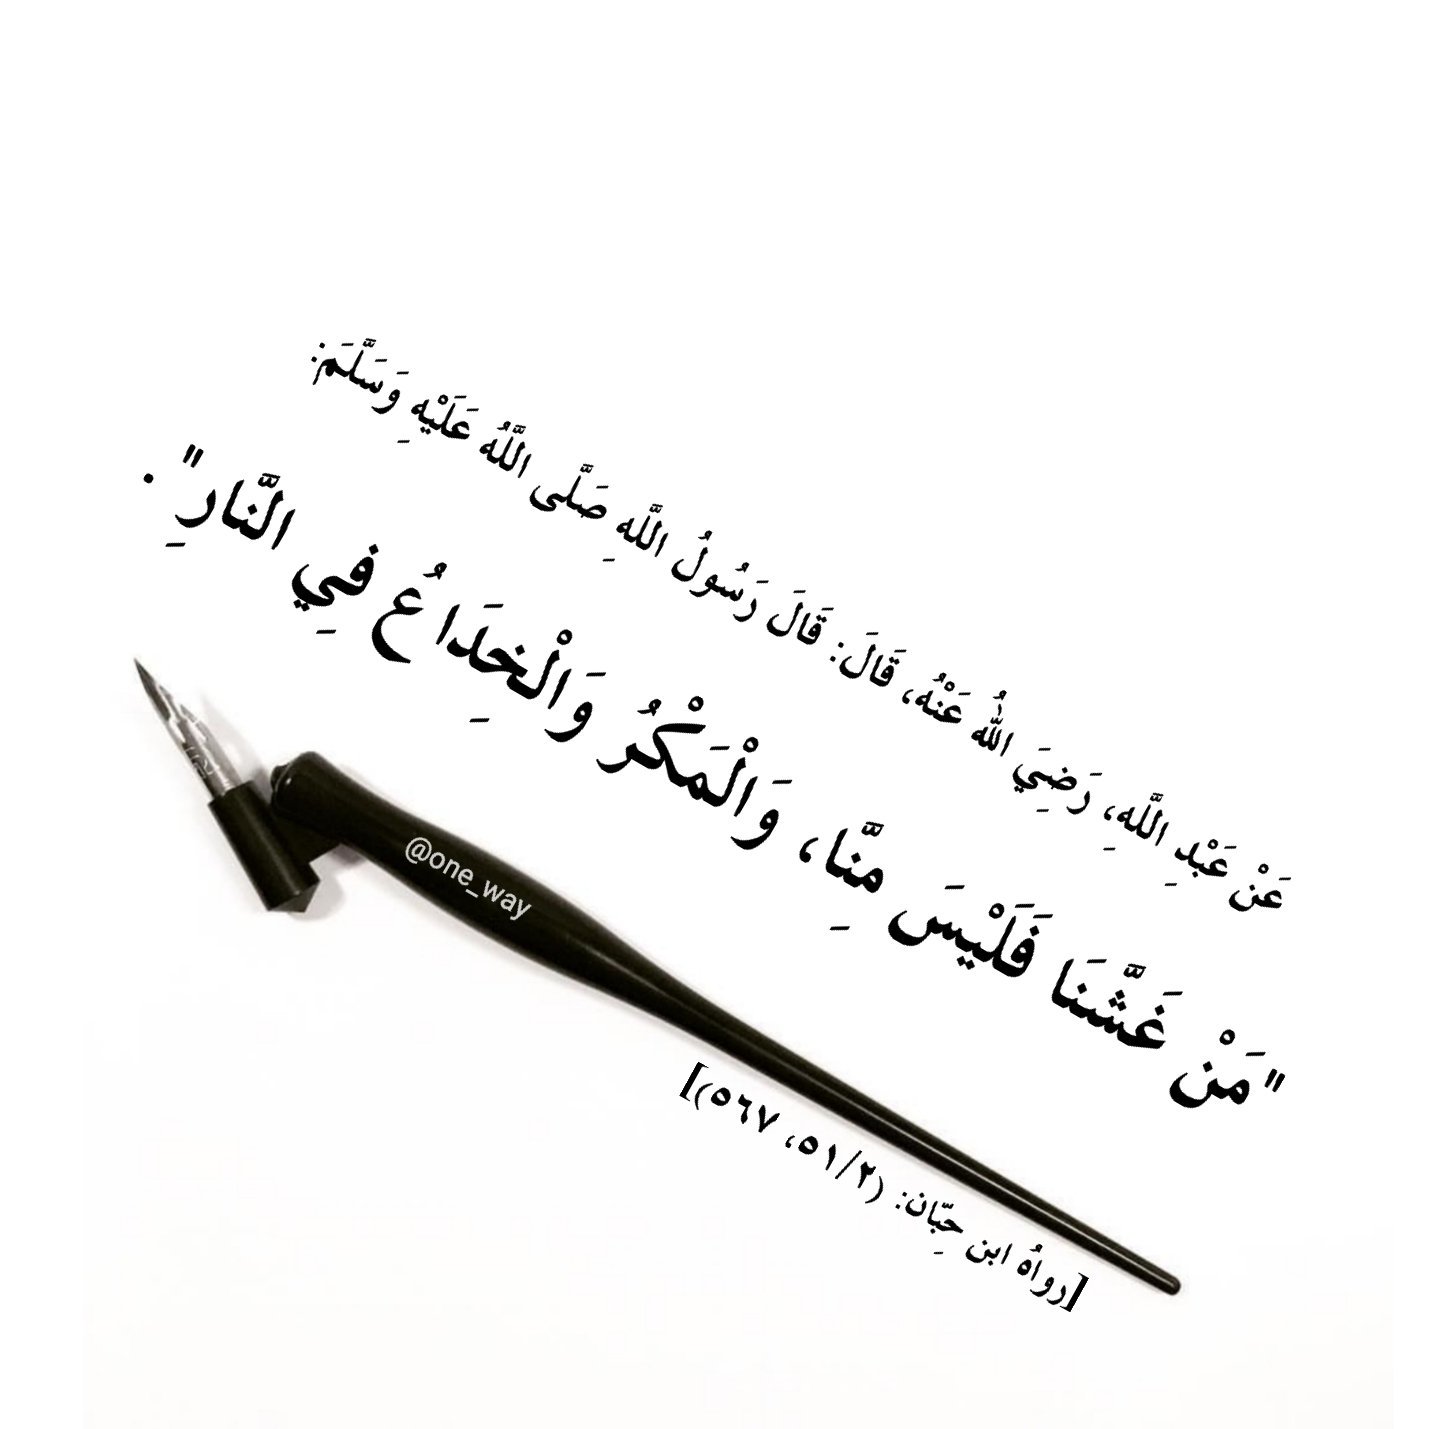 عَنْ عَبْدِ اللَّهِ، رَضِيَ اللّٰهُ عَنْهُ، قَالَ: قَالَ رَسُولُ اللَّهِ صَلَّى اللَّهُ عَلَيْهِ وَسَلَّمَ:
"مَنْ غَشَّنَا فَلَيْسَ مِنَّا، وَالْمَكْرُ وَالْخِدَاعُ فِي النَّارِ" .
@one_way
[رواهُ ابن حِبّان: (٥١/٢، ٥٦٧)]